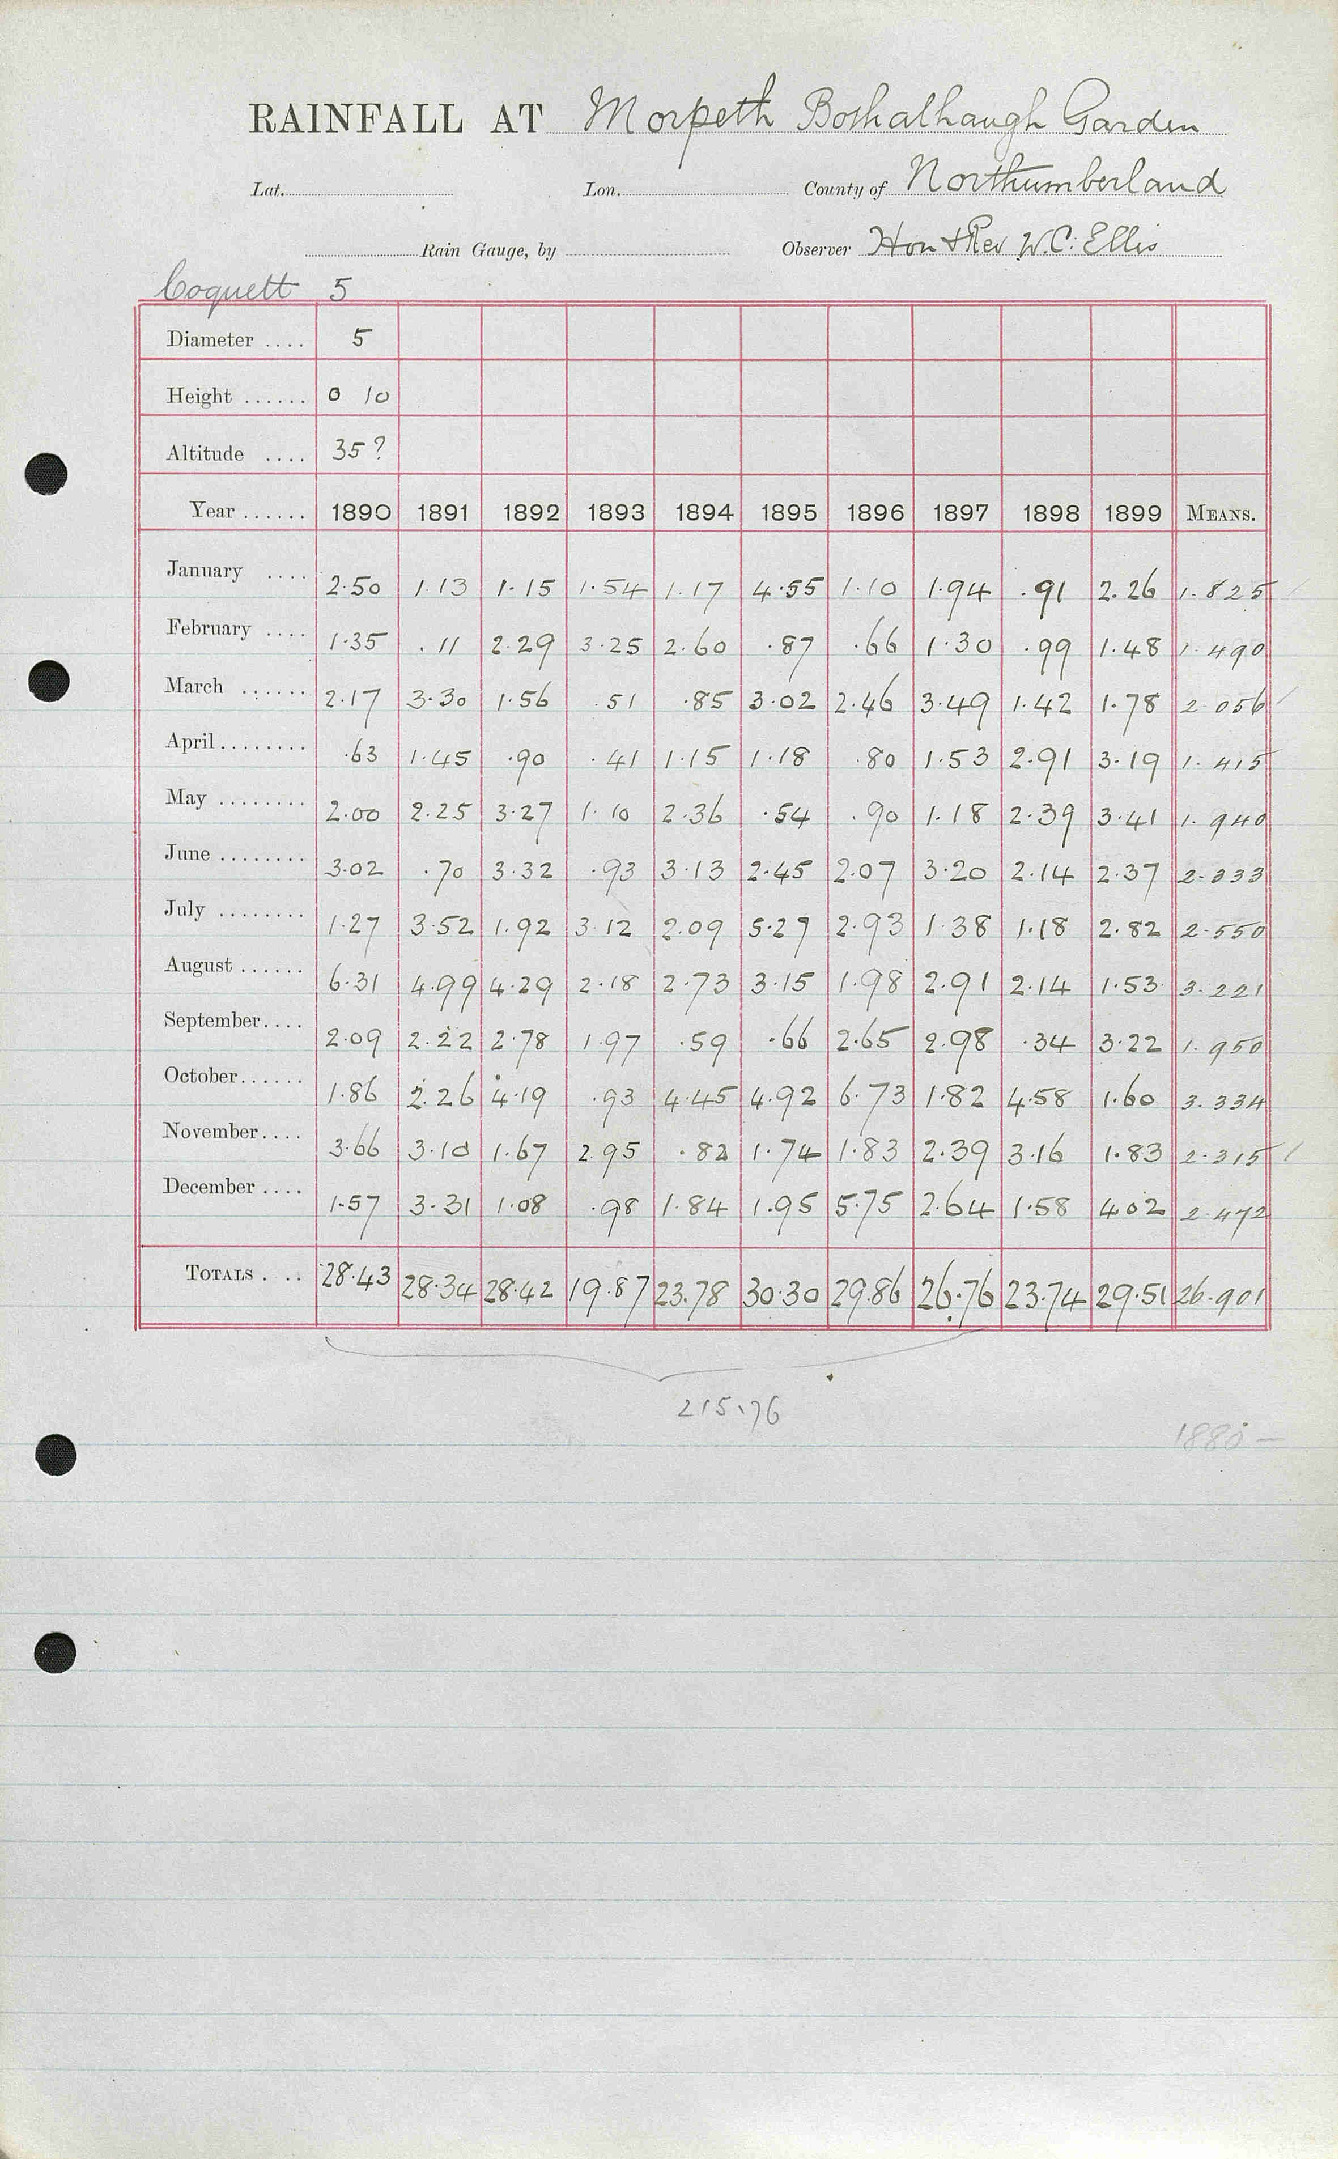 RAINFALL AT Morpeth Bothalhaugh Garden
Lat. Lon. County of Northumberland
Rain Gauge, by Observer Hon & Rev W.C. Ellis
Coquett 5
Diameter .... 5
Height ...... 0 10
Altitude .... 35?
Year ...... 1890 1891 1892 1893 1894 1895 1896 1897 1898 1899 MEANS.
January .... 2.50 1.13 1.15 1.54 1.17 4.55 1.10 1.94 .91 2.26 1.825
February .... 1.35 .11 2.29 3.25 2.60 .87 .66 1.30 .99 1.48 1.490
March ...... 2.17 3.30 1.56 .51 .85 3.02 2.46 3.49 1.42 1.78 2.056
April ........ .63 1.45 .90 .41 1.15 1.18 .80 1.53 2.91 3.19 1.415
May ........ 2.00 2.25 3.27 1.10 2.36 .54 .90 1.18 2.39 3.41 1.940
June ........ 3.02 .70 3.32 .93 3.13 2.45 2.07 3.20 2.14 2.37 2.333
July ........ 1.27 3.52 1.92 3.12 2.09 5.27 2.93 1.38 1.18 2.82 2.550
August ...... 6.31 4.99 4.29 2.18 2.73 3.15 1.98 2.91 2.14 1.53 3.221
September .... 2.09 2.22 2.78 1.97 .59 .66 2.65 2.98 .34 3.22 1.950
October ...... 1.86 2.26 4.19 .93 4.45 4.92 6.73 1.82 4.58 1.60 3.334
November .... 3.66 3.10 1.67 2.95 .82 1.74 1.83 2.39 3.16 1.83 2.315
December .... 1.57 3.31 1.08 .98 1.84 1.95 5.75 2.64 1.58 4.02 2.472
TOTALS .... 28.43 28.34 28.42 19.87 23.78 30.30 29.86 26.76 23.74 29.51 26.901
215.76
1880 –